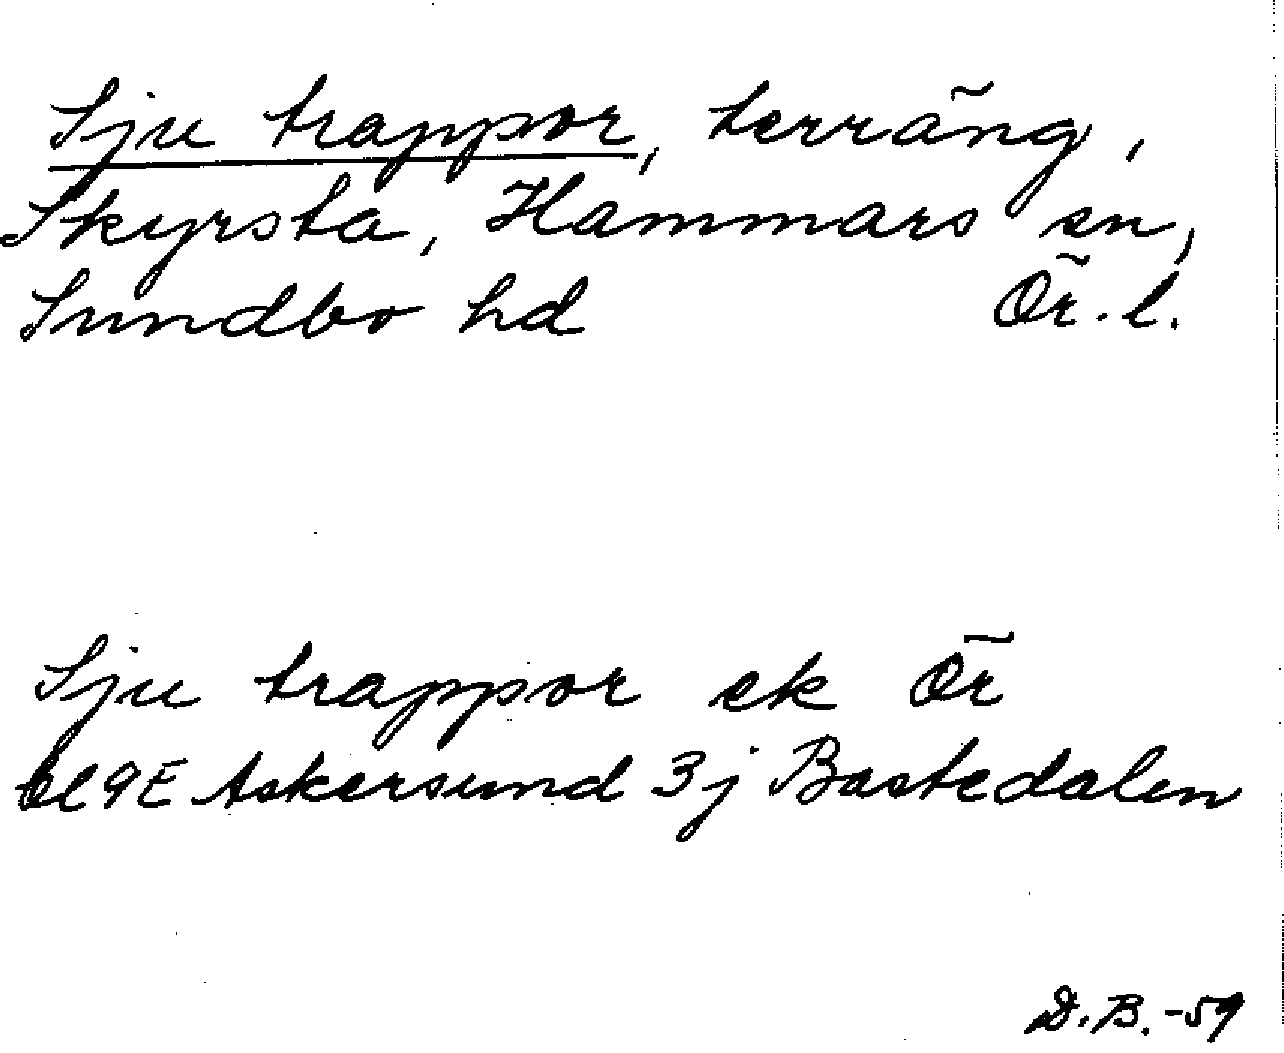 Sju trappor, terräng,
Skyrsta, Hammars sn,
Sundbo hd Ör. l.
Sju trappor ek Ör
9E Askersund 3j Bastedalen
D.B.-59